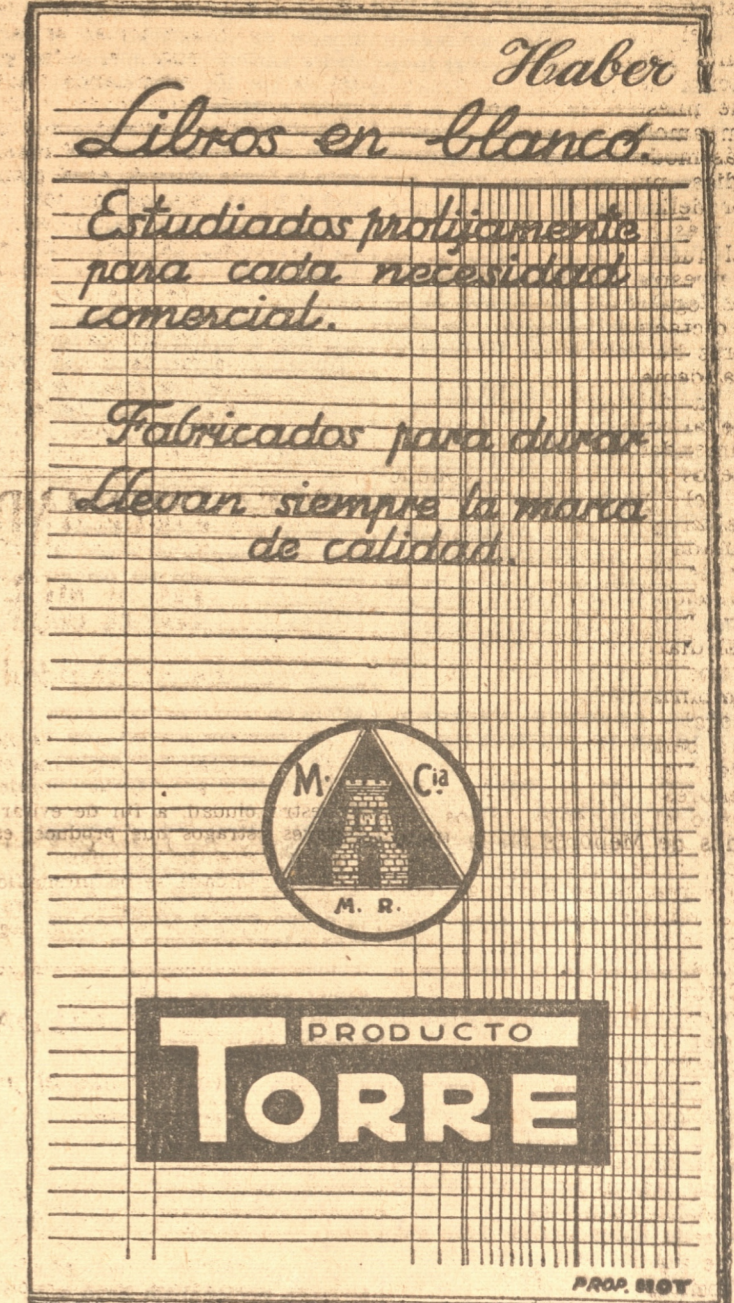 Haber
Libros en blanco.
Estudiados prolijamente
para cada necesidad
comercial.
Fabricados para durar
Llevan siempre la marca
de calidad.
M. Cia
M. R.
PRODUCTO
TORRE
PROP. HOT